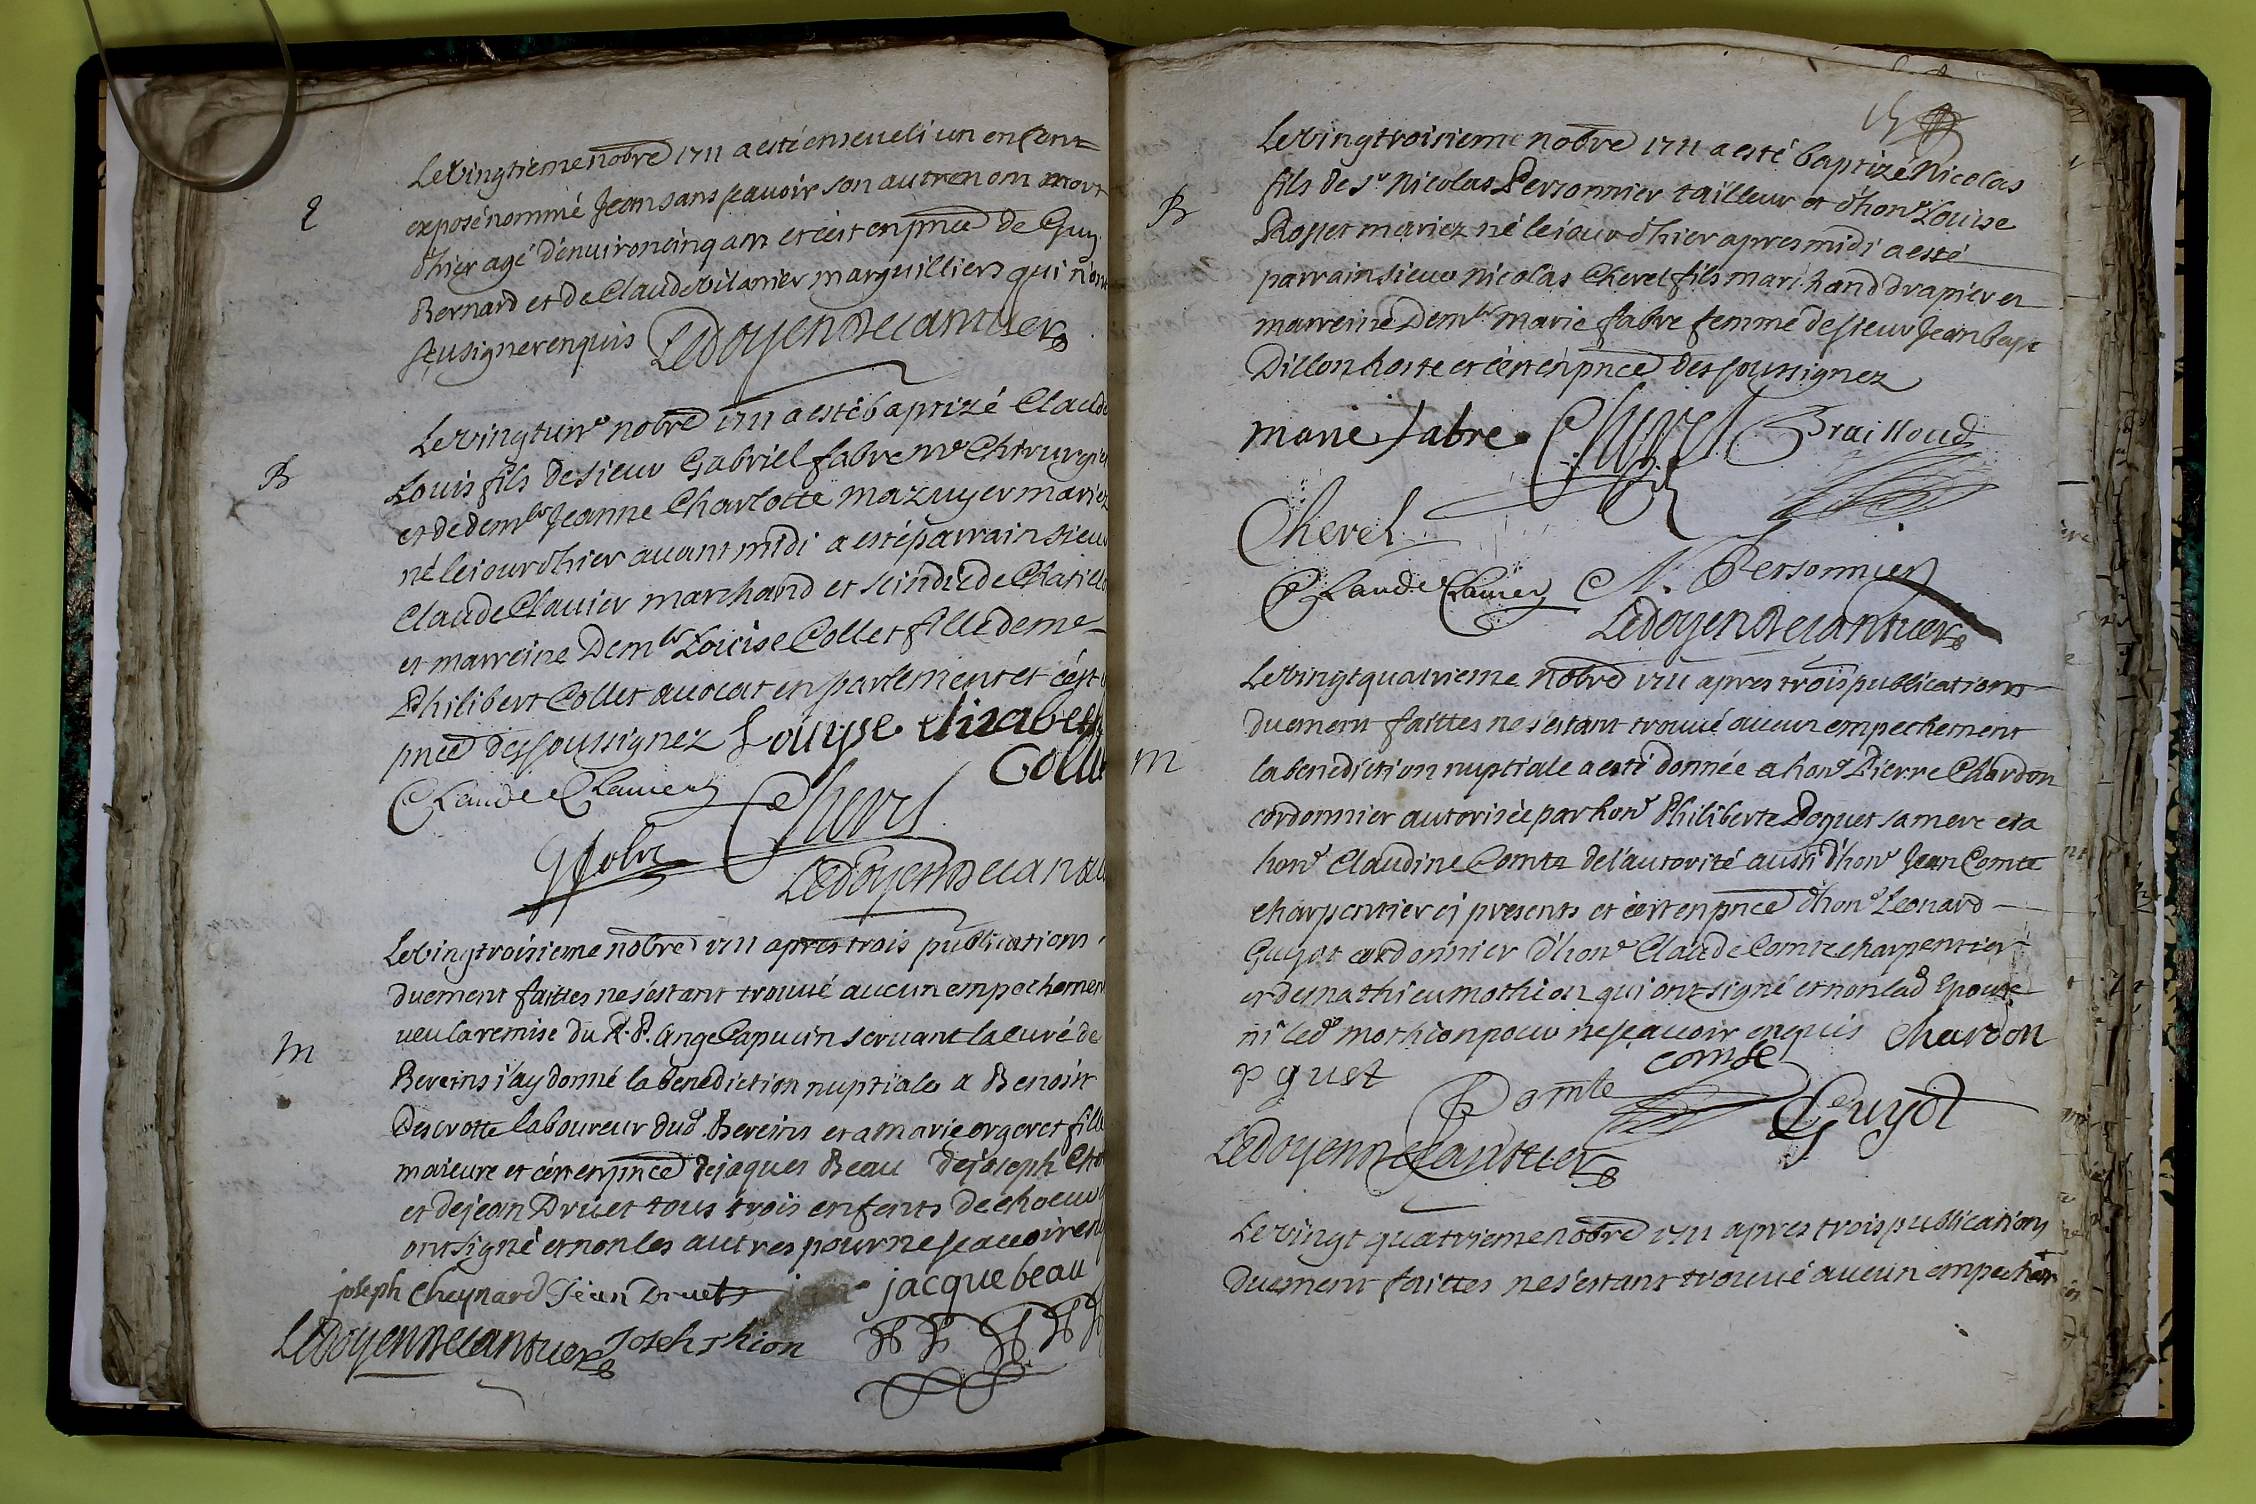 Le vingtieme nobre 1711 a esté enseveli un enfent
exposé nommé Jean sans sçavoir son autre nom mort
d'hier agé d'environ cinq ans et c'est en pnce de Guy
Bernard et de Claude vilanier marguilliers qui n'ont
sçu signer enquis Ledoyen Decantuer
E
Le vingt un.e nobre 1711 a esté baptizé Claude
Louis fils de sieur Gabriel fabre me Chirurgien
et de dem.lle Jeanne Charlotte mazuyer mariez
né le jour d'hier avant midi a esté parrain sieur
Claude Clavier marchand et scindic de Chatillon
et marreine Dem.lle Loüise Collet fille de me
Philibert Collet avocat en parlement et c'est
pnce des soussignez Louyse Elizabeth
Collet
B
Claude Clavier Cheves
G fabre
Ledoyen Decantuer
Le vingtroisieme nobre 1711 apres trois publications
duement faittes ne s'estant trouvé aucun empechement
veu la remise du R. P. Ange Capucin servant la curé de
Bereins j'ay donné la benediction nuptiale a Benoist
Descrotte laboureur dud. Bereins et a marie orgeret fille
majeure et c'est en pnce de jaques Beau de joseph
et de jean Druet tous trois enfants de choeur
ont signé et non les autres pour ne sçavoir
M
joseph Cheynard Jean Druet jacque beau
Ledoyen Decantuer
Le vingtroisieme nobre 1711 a esté baptizé Nicolas
fils de Sr Nicolas Personnier tailleur et d'hon.e Louise
Rosset mariez né le jour d'hier apres midi a esté
parrain sieur Nicolas Cherel fils marchand drapier et
marreine Dem.lle Marie fabre femme de sieur Jean bapt
Dillon hoste et c'est en pnce des soussignez
B
marie fabre Cheves Brailloud
Cherel
Claude Clavier N. Personnier
Ledoyen Decantuer
Le vingt quatrieme nobre 1711 apres trois publications
duement faittes ne s'estant trouvé aucun empechement
la benediction nuptiale a esté donnée a hon.e Pierre Chardon
cordonnier autorisée par hon.e Philiberte Poquet sa mere et a
hon.e Claudine Comte de l'autorité aussi d'hon.e Jean Comte
charpentier ci presents et c'est en pnce d'hon.e Leonard
Guyot cordonnier d'hon.e Claude Comte charpentier
et de mathieu mothion qui ont signé et non lad. Epouse
ni led. mothion pour ne sçavoir enquis Chardon
M
p quet comte
Comte Guyot
Ledoyen Decantuer
Le vingt quatrieme nobre 1711 apres trois publications
duement faittes ne s'estant trouvé aucun empechemt